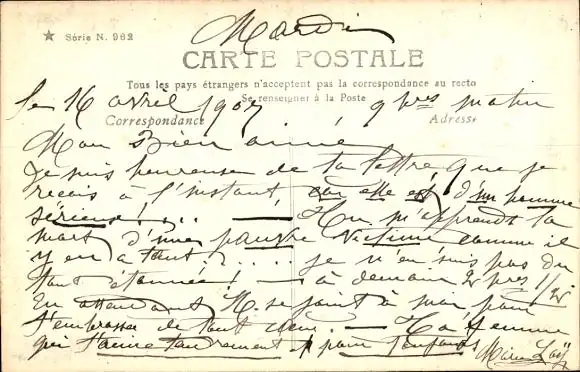 Mardi
★ Série N. 962
CARTE POSTALE
Tous les pays étrangers n'acceptent pas la correspondance au recto
Se renseigner à la Poste
le 16 avril 1907 9 hres matin
Correspondance Adresse
Mon Bien aimé
Je suis heureuse de ta lettre, que je
reçois à l'instant, car elle est d'un homme
sérieux!... — Tu m'apprends ta
mort d'une pauvre victime comme il
y en a tant. je n'en suis pas du
tout étonnée! — à demain 2 hres 1/2
En attendant M. se joint à moi pour
t'embrasser de tout cœur. — Ta femme
qui t'aime tendrement pour toujours